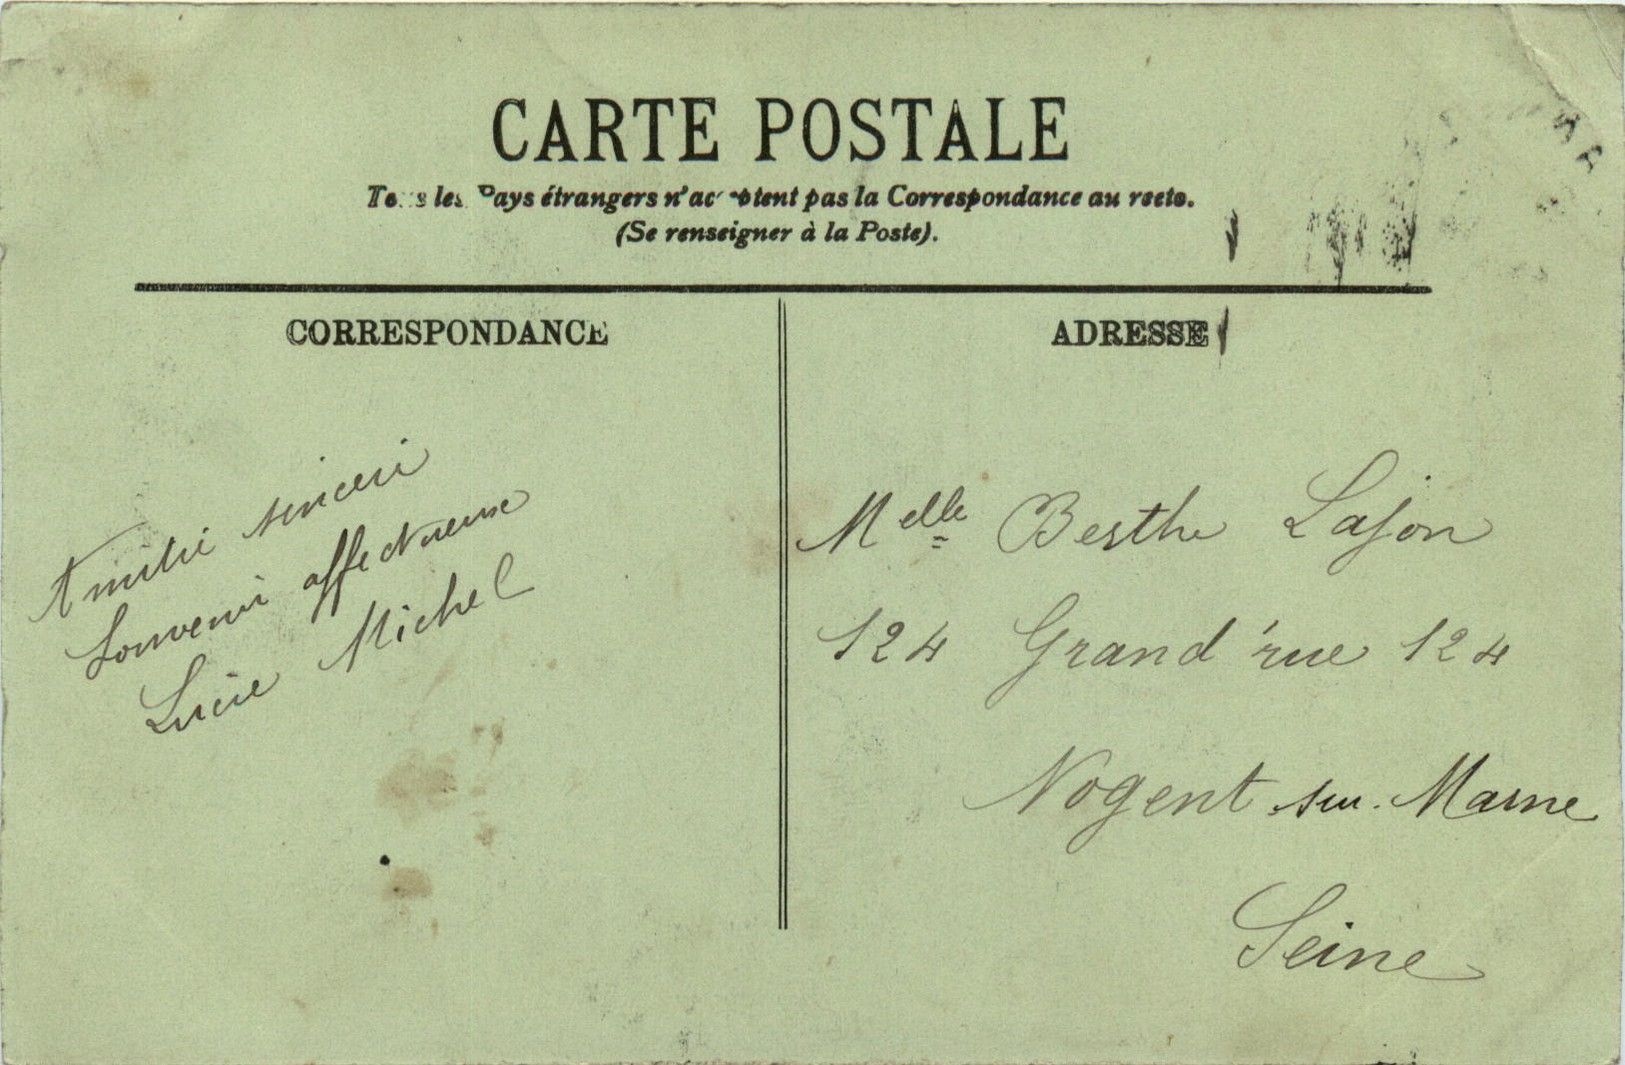 CARTE POSTALE
Tous les Pays étrangers n'acceptent pas la Correspondance au recto.
(Se renseigner à la Poste).
CORRESPONDANCE
ADRESSE
Amitié sincère
Souvenir affectueuse
Lucie Michel
Melle Berthe Lafon
124 Grand'rue 124
Nogent sur Marne
Seine